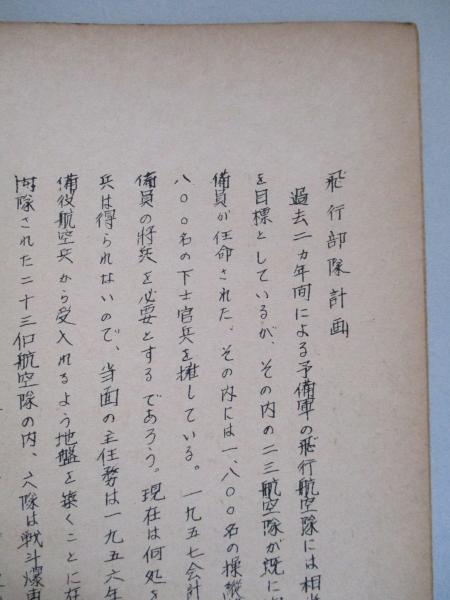 飛行部隊計画
過去二カ年间による予備軍の飛行航空隊には相当
を目標としているが、その内の二三航空隊が既に
備員が任命された。その内には一、八〇〇名の操縦
八〇〇名の下士官兵を擁している。一九五七会計
備員の將兵を必要とするであろう。現在は何処
兵は得られないので、当面の主任務は一九五六年
備役航空兵から受入れるよう地盤を築くことに在
隊された二十三個航空隊の内、六隊は戦斗爆